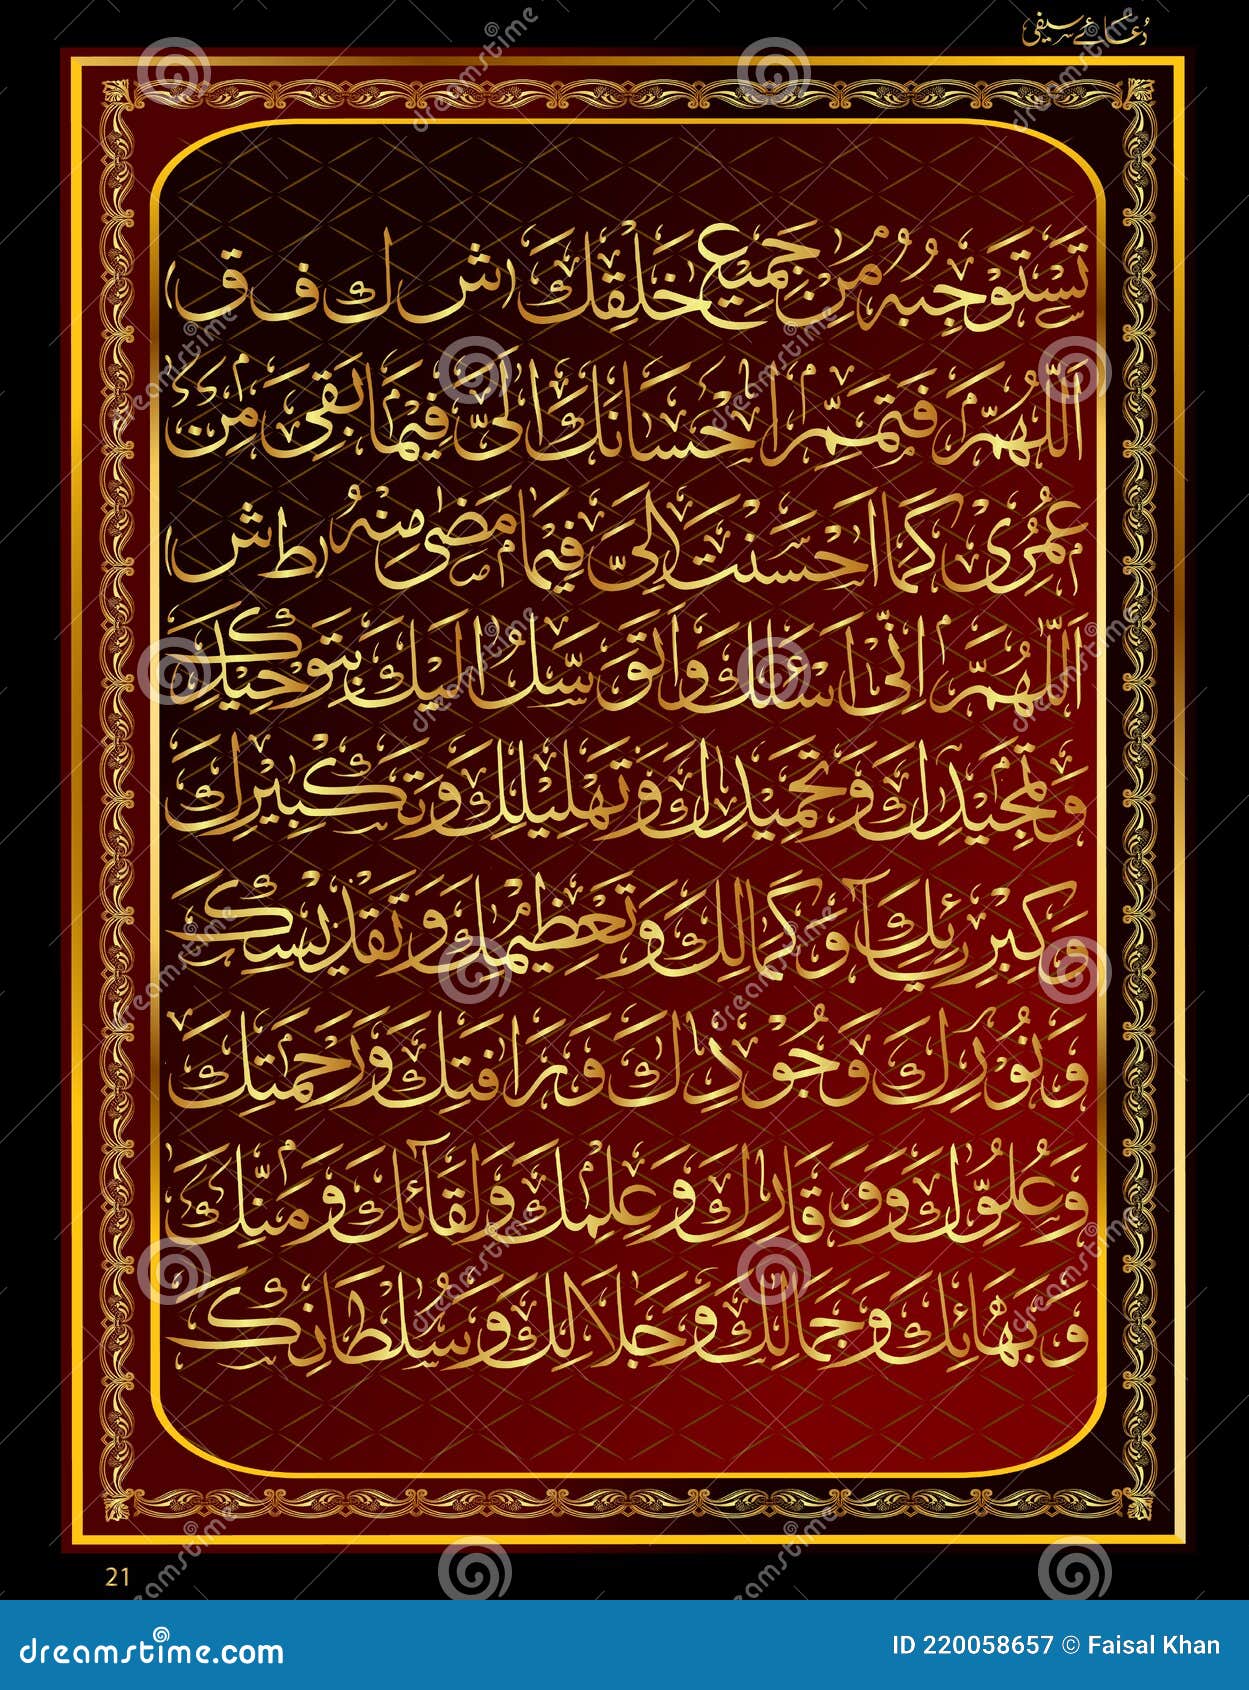 دُعائے سیفی
تَسْتَوْجِبُهٗ مِنْ جَمِيْعِ خَلْقِكَ (ش ك ف ق)
اَللّٰهُمَّ فَتَمِّمْ اِحْسَانَكَ اِلَىَّ فِيْمَا بَقِىَ مِنْ
عُمُرِىْ كَمَا اَحْسَنْتَ اِلَىَّ فِيْمَا مَضٰى مِنْهُ (ط ش)
اَللّٰهُمَّ اِنِّىْ اَسْئَلُكَ وَاَتَوَسَّلُ اِلَيْكَ بِتَوْحِيْدِكَ
وَتَمْجِيْدِكَ وَتَحْمِيْدِكَ وَتَهْلِيْلِكَ وَتَكْبِيْرِكَ
وَكِبْرِيَآئِكَ وَكَمَالِكَ وَتَعْظِيْمِكَ وَتَقْدِيْسِكَ
وَنُوْرِكَ وَجُوْدِكَ وَرَافَتِكَ وَرَحْمَتِكَ
وَعُلُوِّكَ وَوَقَارِكَ وَعِلْمِكَ وَلِقَآئِكَ وَمَنِّكَ
وَبَهَائِكَ وَجَمَالِكَ وَجَلَالِكَ وَسُلْطَانِكَ
21
dreamstime.com
ID 220058657 © Faisal Khan